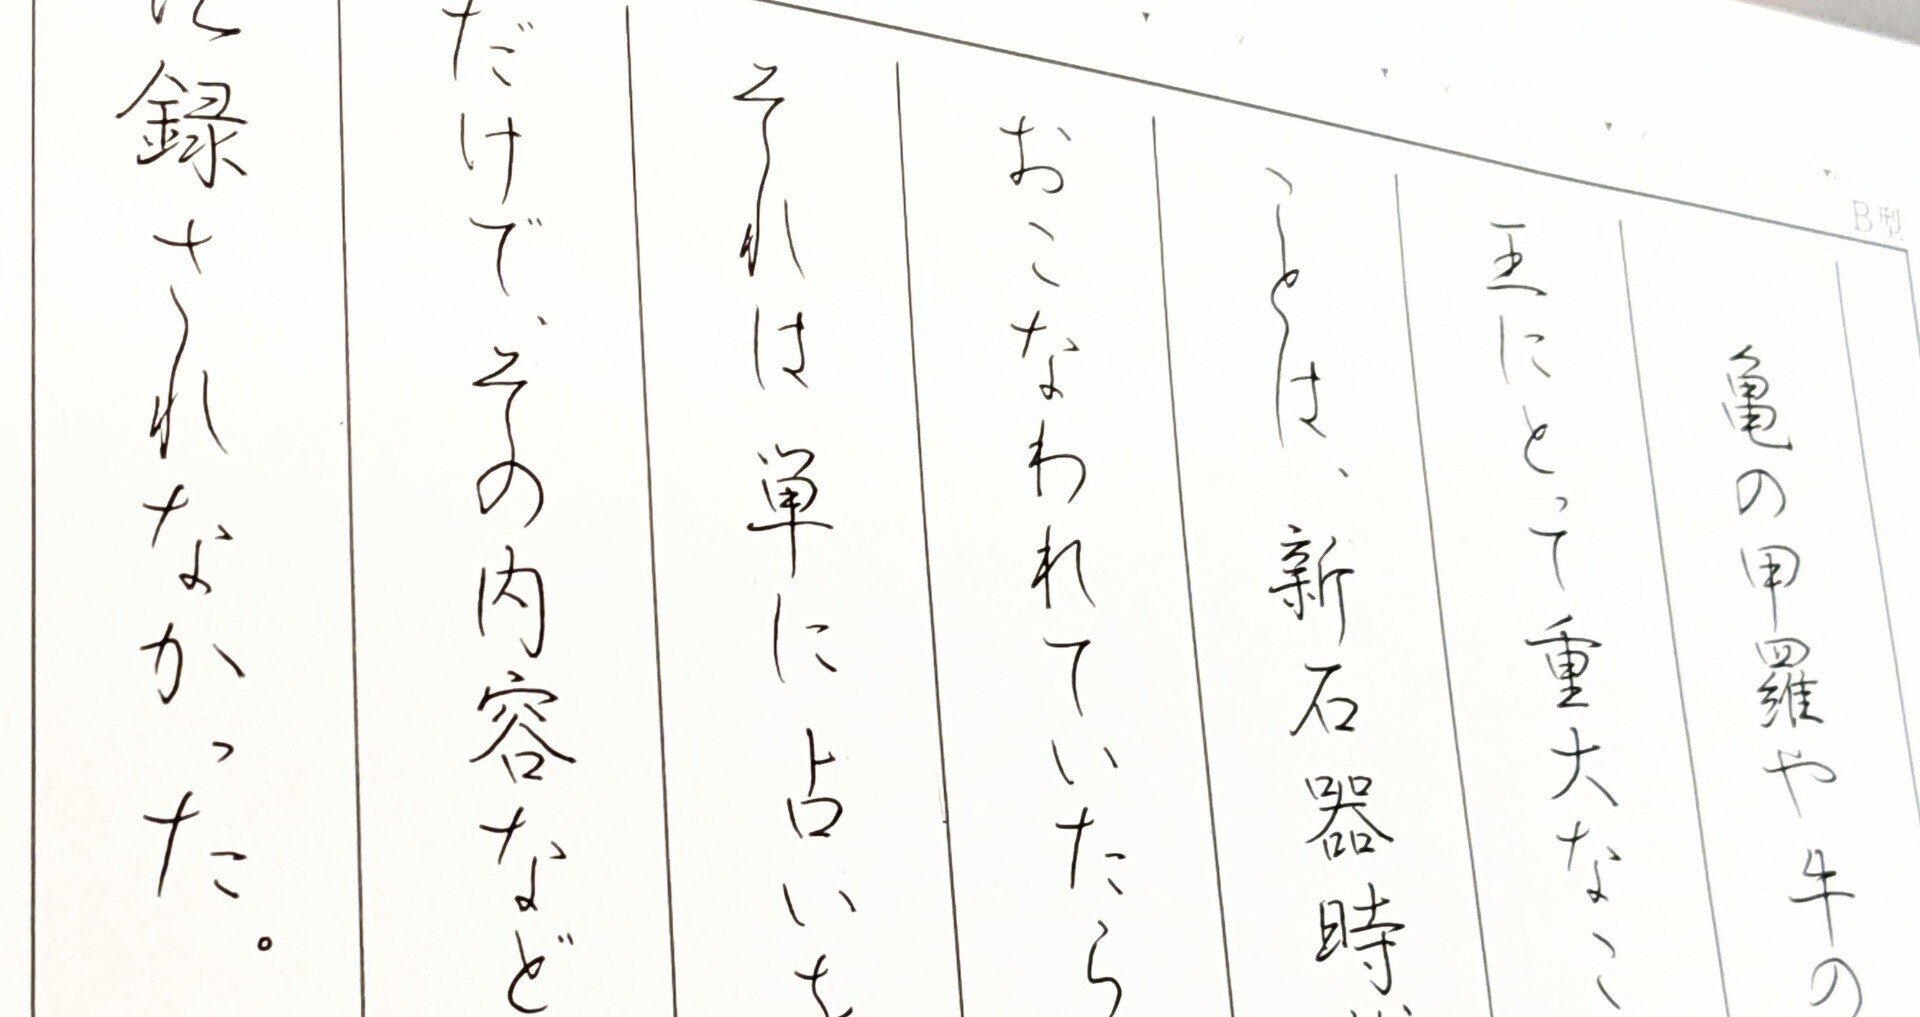 B型
亀の甲羅や牛の
王にとって重大なこ
ことは、新石器時
おこなわれていたら
それは単に占いを
だけで、その内容など
録されなかった。